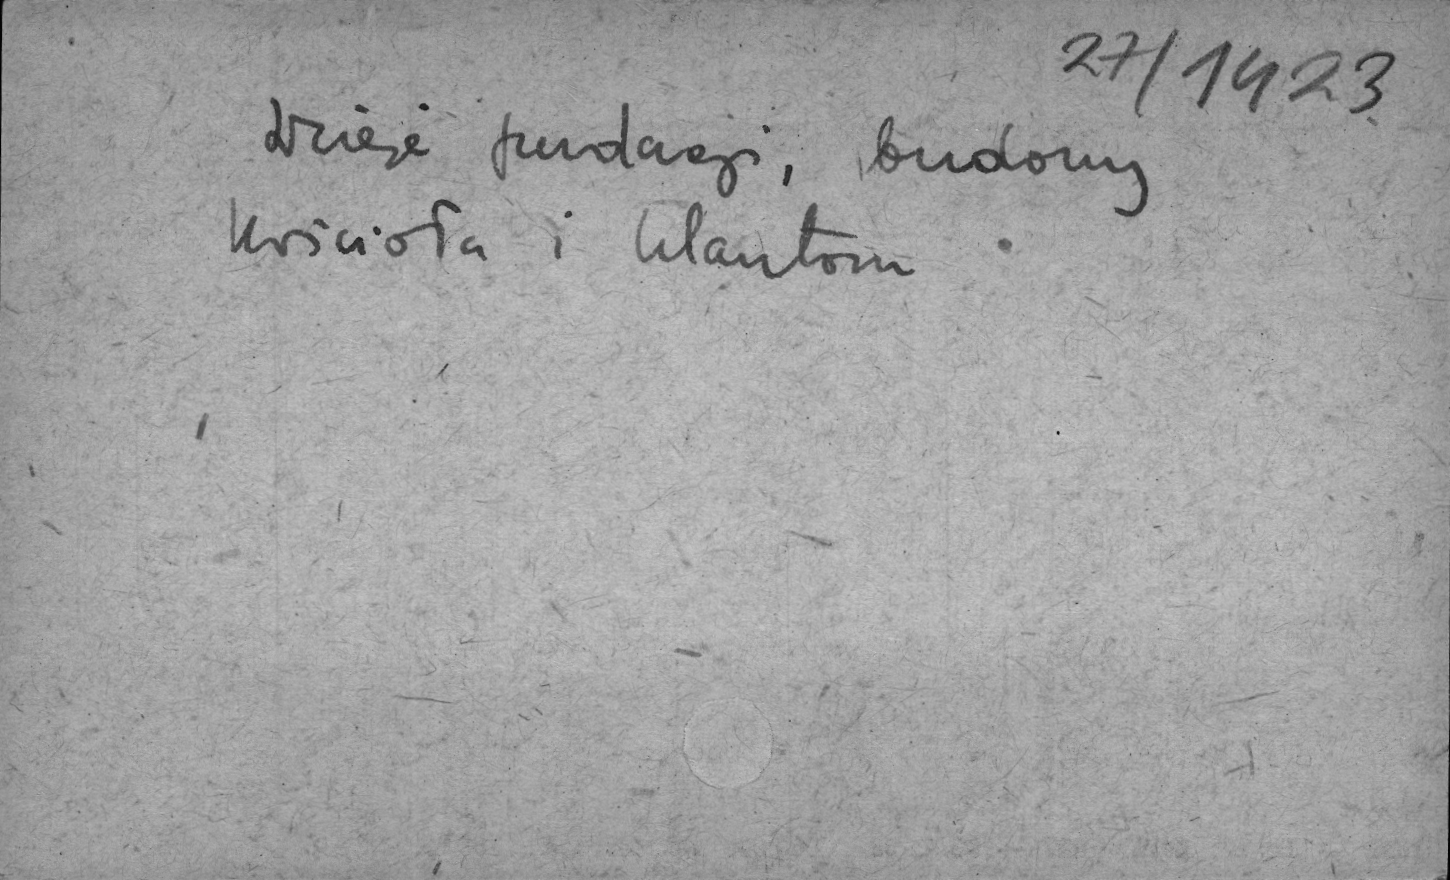 27/1423
Dzieje fundacji, budowy
kościoła i klasztoru